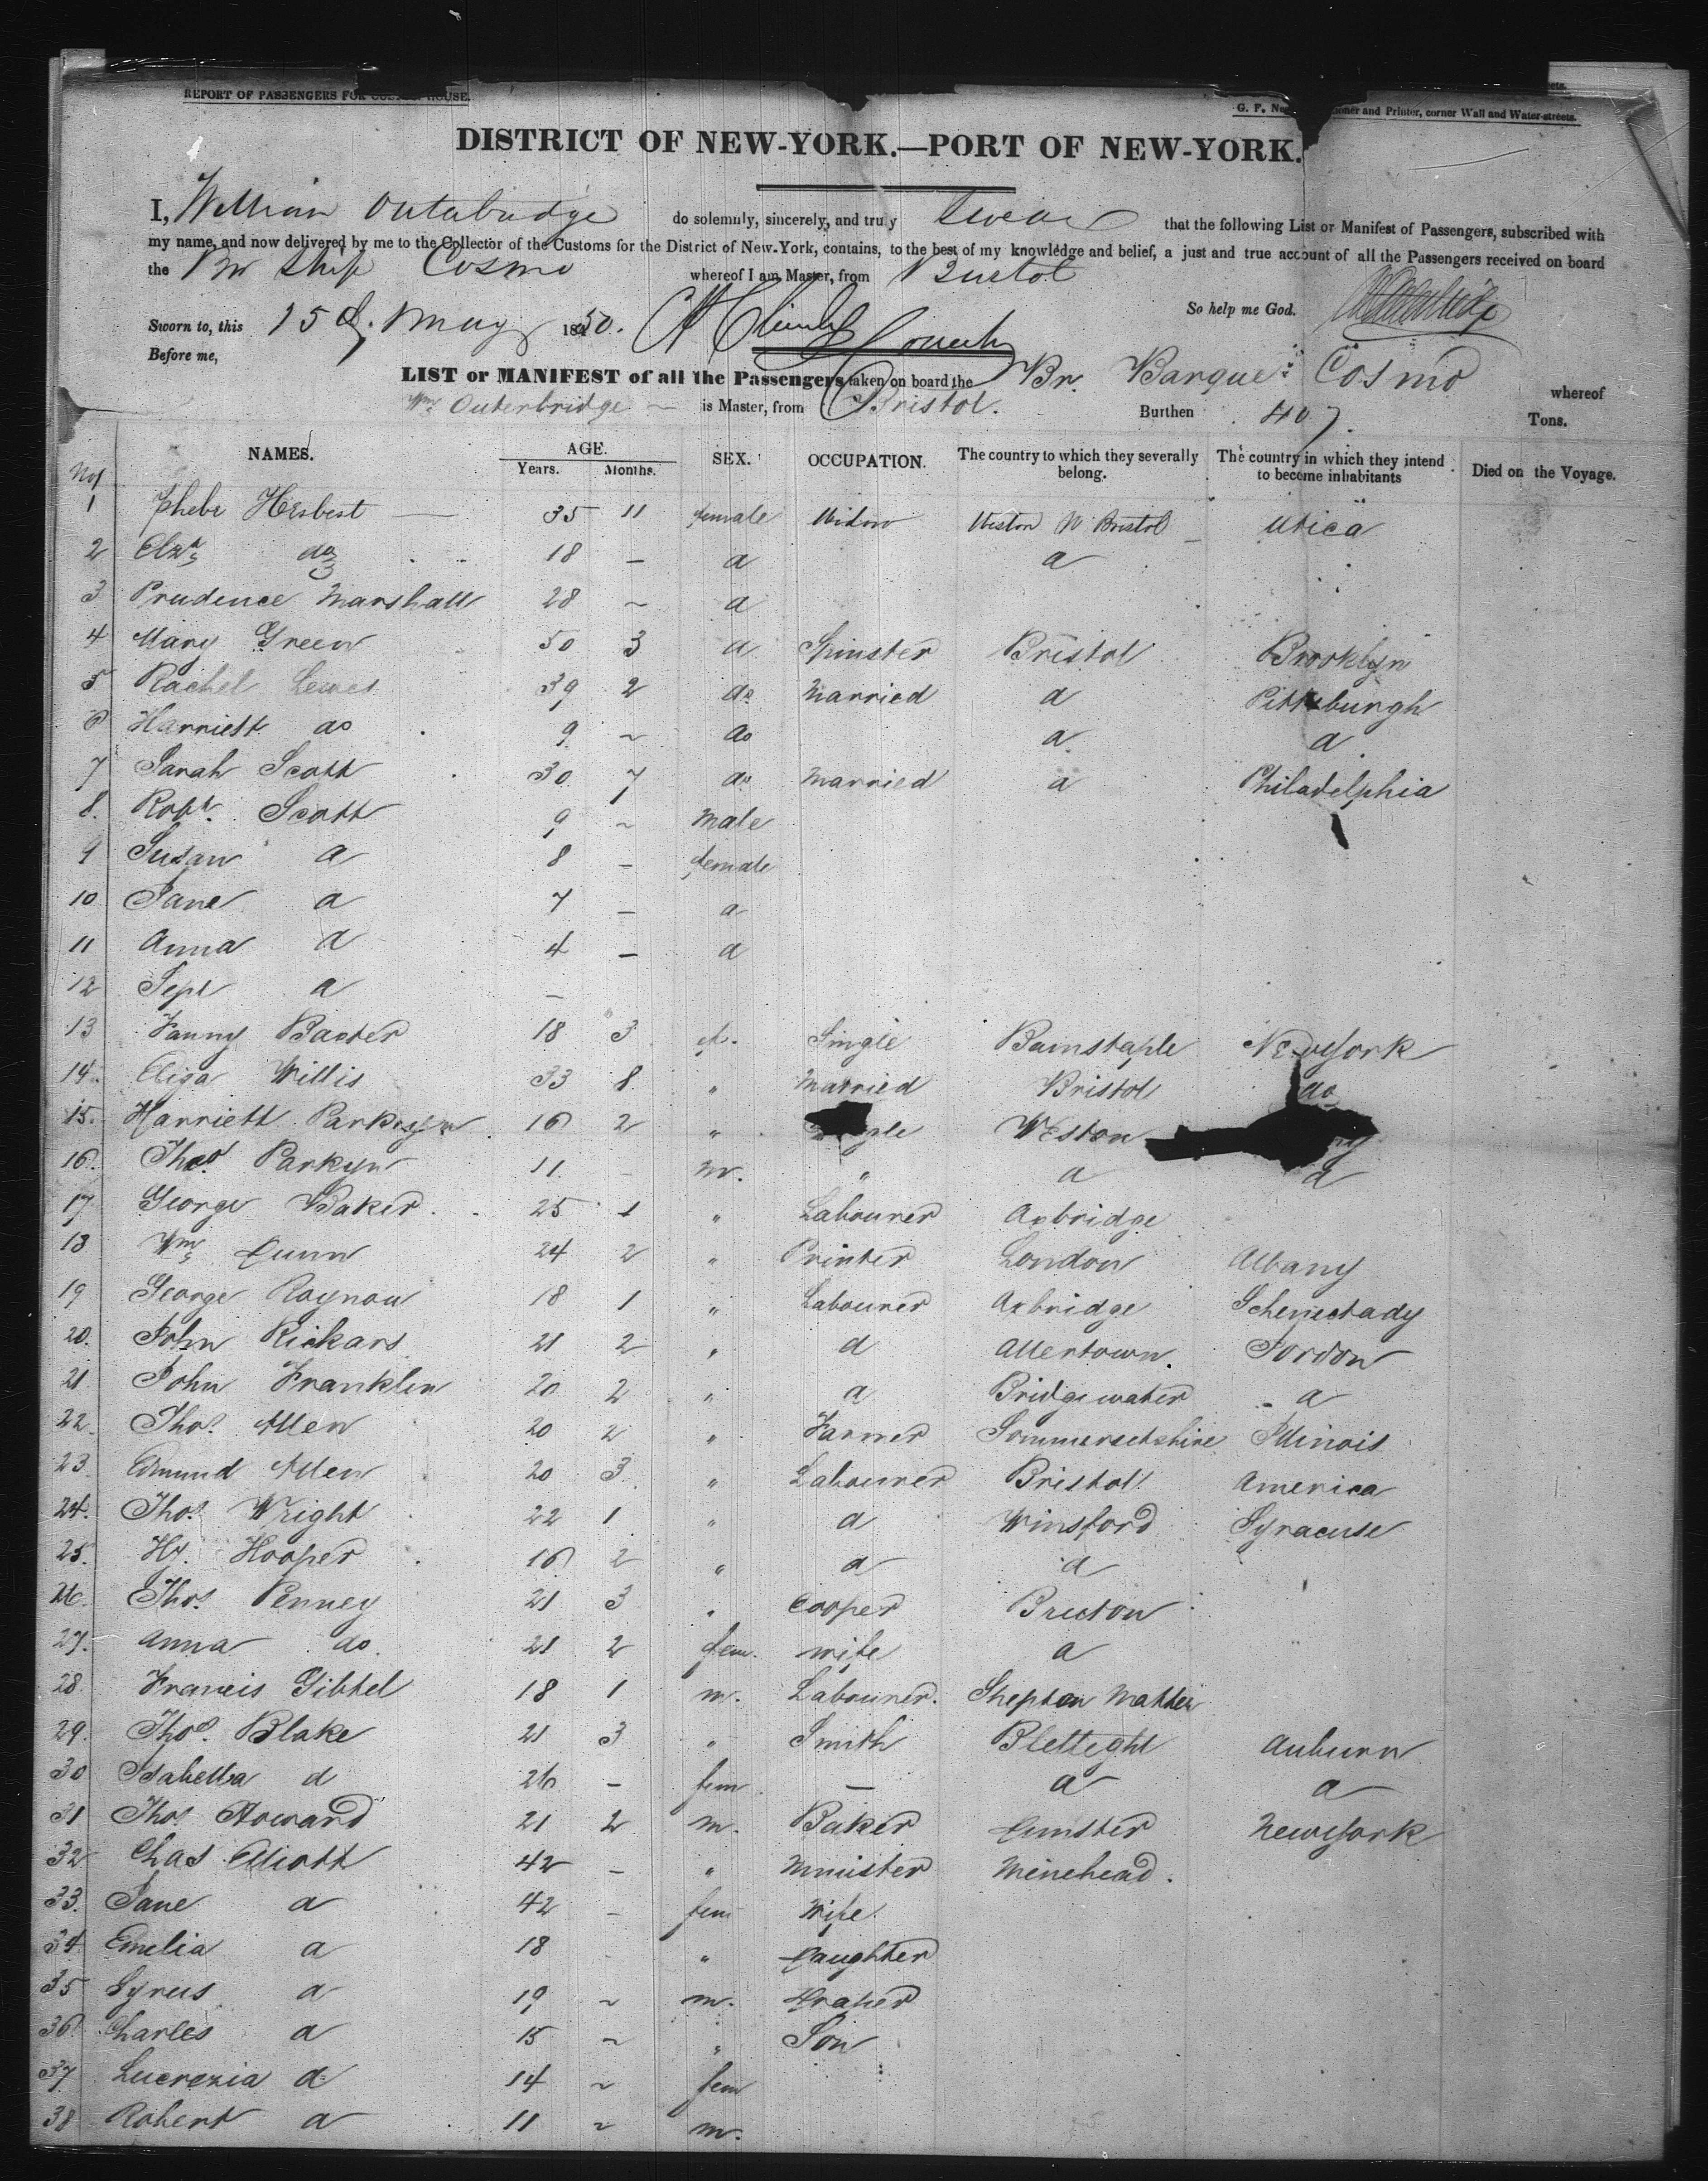 REPORT OF PASSENGERS FOR CUSTOM HOUSE.
G. F. and Printer, corner Wall and Water-streets.
DISTRICT OF NEW-YORK.—PORT OF NEW-YORK.
I, William Outerbridge do solemnly, sincerely, and truly swear that the following List or Manifest of Passengers, subscribed with
my name, and now delivered by me to the Collector of the Customs for the District of New-York, contains, to the best of my knowledge and belief, a just and true account of all the Passengers received on board
the Br Ship Cosmo whereof I am Master, from Bristol
So help me God.
Sworn to, this 15 d. May 1850.
Before me,
LIST or MANIFEST of all the Passengers taken on board the Br. Barque Cosmo whereof
Wm Outerbridge is Master, from Bristol. Burthen 407. Tons.
No NAMES. AGE. Years. Months. SEX. OCCUPATION. The country to which they severally belong. The country in which they intend to become inhabitants Died on the Voyage.
1 Phebe Herbest 35 11 female Widow Weston N Bristol Utica
2 Elza do 18 - d d
3 Prudence Marshall 28 ~ d
4 Mary Green 50 3 d Spinster Bristol Brooklyn
5 Rachel Lewes 39 2 do Married d Pittsburgh
6 Harriett do 9 ~ do d d
7 Sarah Scott 30 7 do Married d Philadelphia
8. Robt. Scott 9 ~ Male
9 Susan d 8 - female
10 Jane d 7 - d
11 Anna d 4 - d
12 Sept d -
13 Fanny Baxter 18 3 Single Barnstaple New York
14. Eliza Willis 33 8 " Married Bristol do
15. Harriett Parkyn 16 2 " Weston
16. Thos Parkyn 11 - m. " d d
17 George Baker 25 1 " Labourer Axbridge
18 Wm Dunn 24 2 " Printer London Albany
19 George Raynou 18 1 " Labourer Axbridge Schenectady
20. John Rickars 21 2 " d Allertown. Jordon
21 John Franklin 20 2 " d Bridgewater d
22. Thos. Allen 20 2 " Farmer Sommersetshire Illinois
23. Edmund Allen 20 3 " Labourer Bristol America
24. Thos. Wright 22 1 " d Winsford Syracuse
25. Hy. Hooper 16 2 " d d
26. Thos. Penney 21 3 " Cooper Bruton
27. Anna do. 21 2 fem. wife d
28. Francis Gibtel 18 1 m. Labourer. Shepton Matten
29. Thos. Blake 21 3 " Smith Auburn
30 Isabella d 26 - fem - d d
31 Thos Howard 21 2 m. Baker Dunster New York
32 Chas Elliott 42 - " Minister Minehead.
33. Jane d 42 - fem Wife
34 Emelia d 18 " Daughter
35 Syrus d 19 ~ m. Draper
36 Charles d 15 ~ " Son
37 Lucrezia d 14 ~ fem
38 Robert d 11 ~ m.